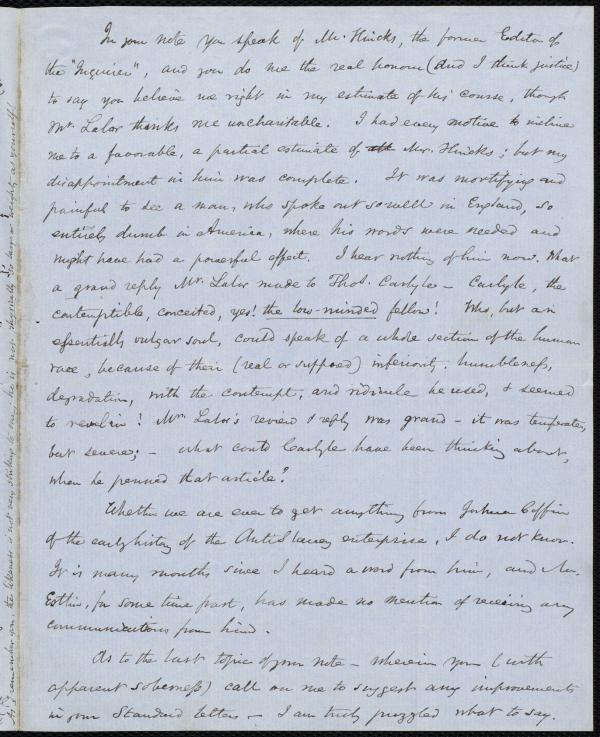 In your note you speak of Mr. Hincks, the former Editor of
the "Inquirer", and you do me the real honour (and I think justice)
to say you believe me right in my estimate of his course, though
Mr. Lalor thinks me uncharitable. I had every motive to incline
me to a favorable, a partial estimate of Mr. Hincks; but my
disappointment in him was complete. It was mortifying and
painful to see a man, who spoke out so well in England, so
entirely dumb in America, where his words were needed and
might have had a powerful effect. I hear nothing of him now. What
a grand reply Mr. Lalor made to Thos. Carlyle — Carlyle, the
contemptible, conceited, yes! the low-minded fellow! Who, but an
essentially vulgar soul, could speak of a whole section of the human
race, because of their (real or supposed) inferiority, humbleness,
degradation, with the contempt, and ridicule he used, & seemed
to revel in! Mr. Lalor's review & reply was grand — it was temperate,
but severe; — what could Carlyle have been thinking about,
when he penned that article?
Whether we are ever to get anything from Joshua Coffin
of the early history of the AntiSlavery enterprise, I do not know.
It is many months since I heard a word from him, and Mr.
Estlin, for some time past, has made no mention of receiving any
communications from him.
As to the last topic of your note — wherein you (with
apparent soberness) call on me to suggest any improvements
in your Standard letters — I am truly puzzled what to say.
as I remember you, the likeness is not very striking to me; he is not